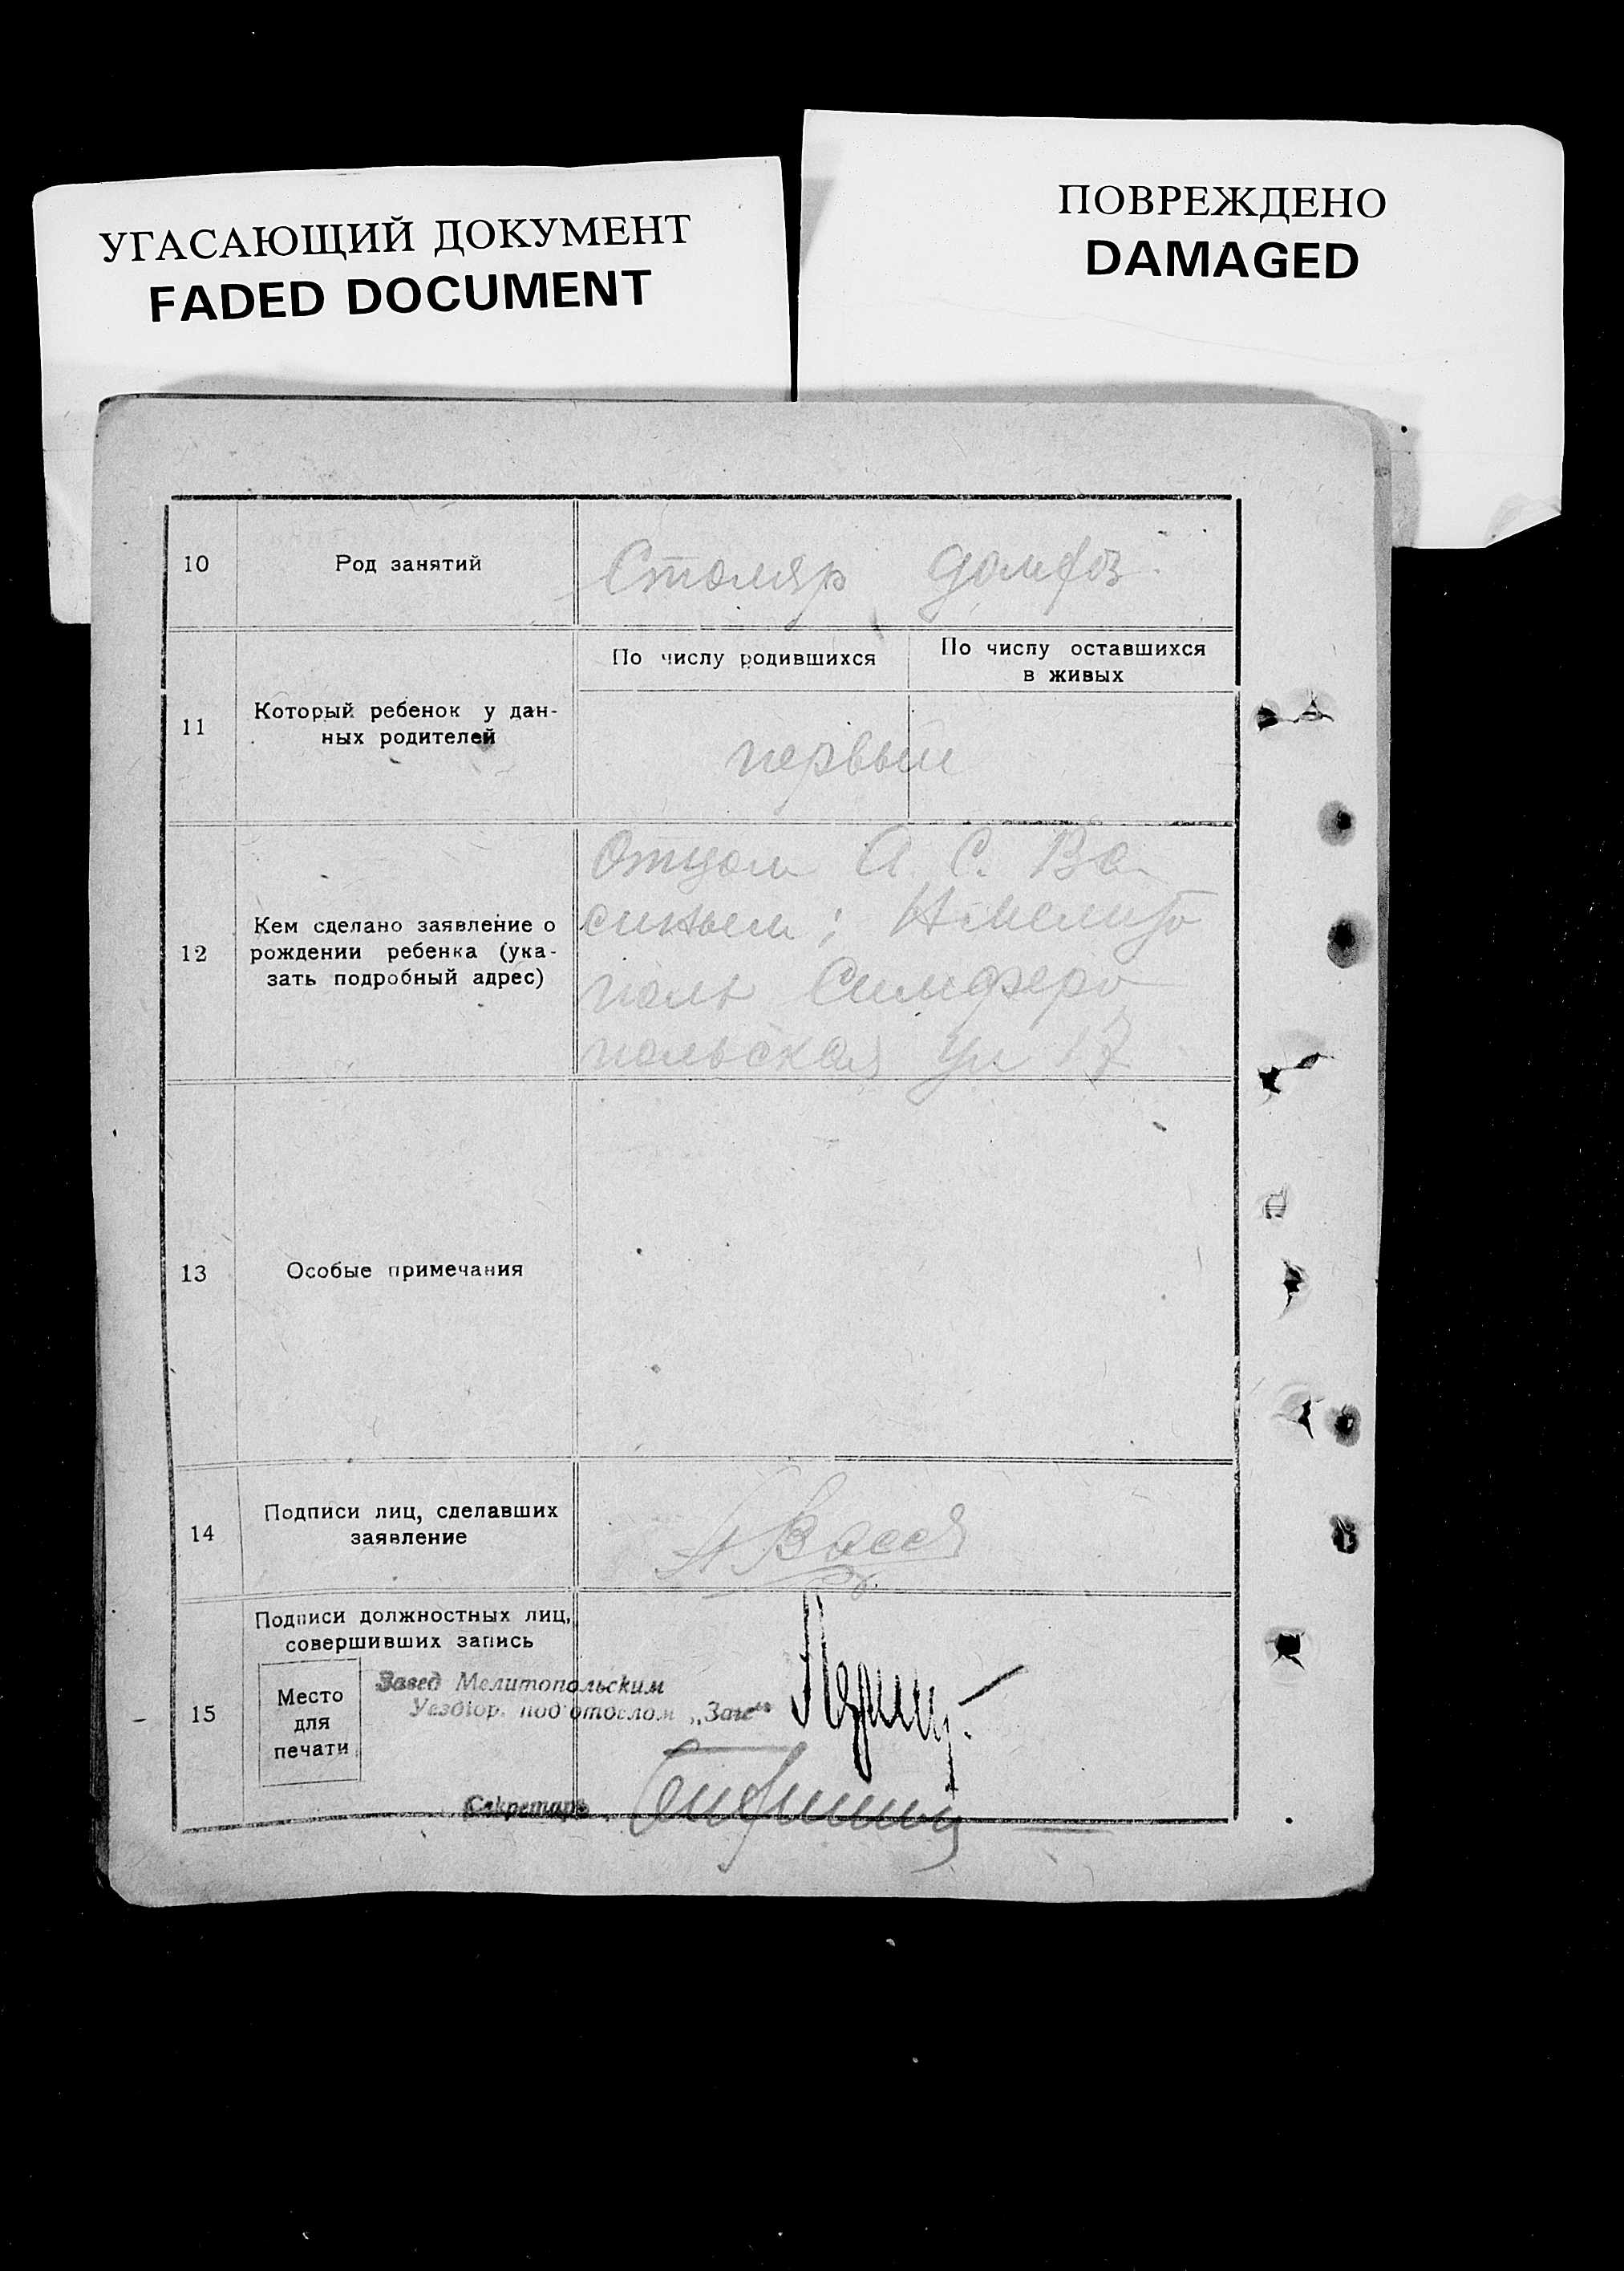 УГАСАЮЩИЙ ДОКУМЕНТ
FADED DOCUMENT
ПОВРЕЖДЕНО
DAMAGED
10
Род занятий
Столяр домхоз
11
Который ребенок у дан-
ных родителей
По числу родившихся
По числу оставшихся
в живых
первый
12
Кем сделано заявление о
рождении ребенка (ука-
зать подробный адрес)
Отцом А. С. Ва
синым; Мелито
поль Симферо
польская ул 17
13
Особые примечания
14
Подписи лиц, сделавших
заявление
15
Подписи должностных лиц,
совершивших запись
Место
для
печати
Завед Мелитопольским
под'отделом „Загс"
Секретарь